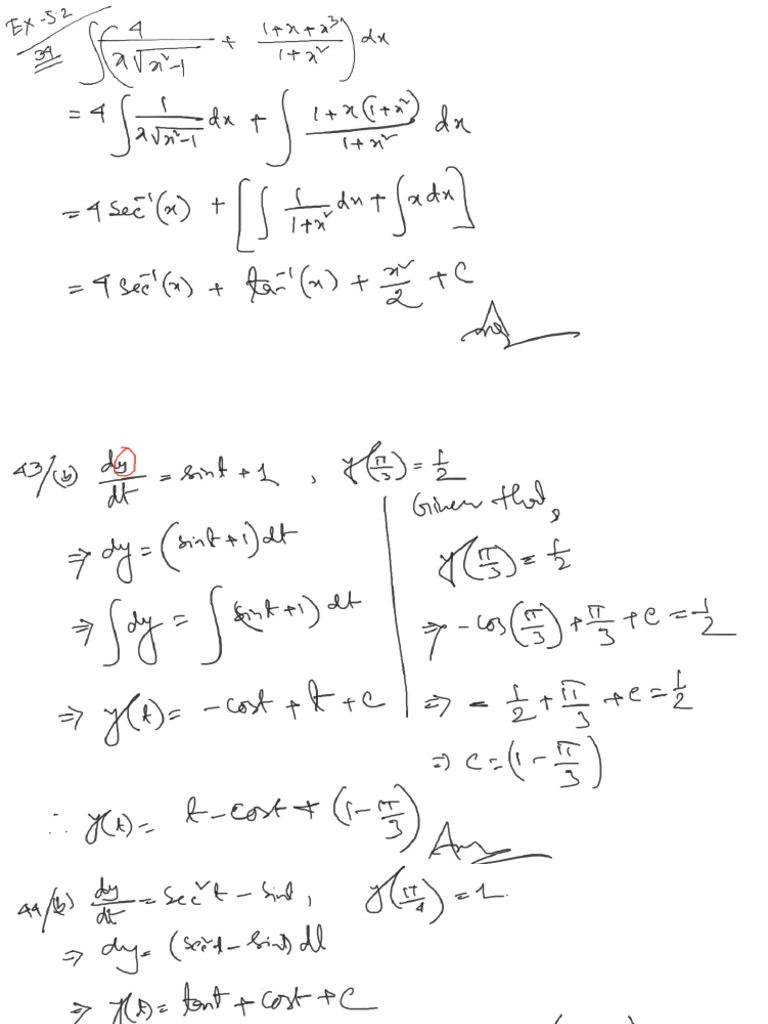 EX-5.2
39 ∫(4/(x√(x²-1)) + (1+x+x³)/(1+x²)) dx
= 4∫ 1/(x√(x²-1)) dx + ∫ (1+x(1+x²))/(1+x²) dx
= 4 sec⁻¹(x) + [∫ 1/(1+x²) dx + ∫ x dx]
= 4 sec⁻¹(x) + tan⁻¹(x) + x²/2 + C
Ans
43/(b) dy/dt = sint + 1, y(π/3) = 1/2
⇒ dy = (sint+1)dt
⇒ ∫dy = ∫(sint+1) dt
⇒ y(t) = -cost + t + c
Given that,
y(π/3) = 1/2
⇒ -cos(π/3) + π/3 + c = 1/2
⇒ - 1/2 + π/3 + c = 1/2
⇒ c = (1 - π/3)
∴ y(t) = t - cost + (1 - π/3)
Ans
44/(b) dy/dt = sec²t - sint, y(π/4) = 1.
⇒ dy = (sec²t - sint) dt
⇒ y(t) = tant + cost + C